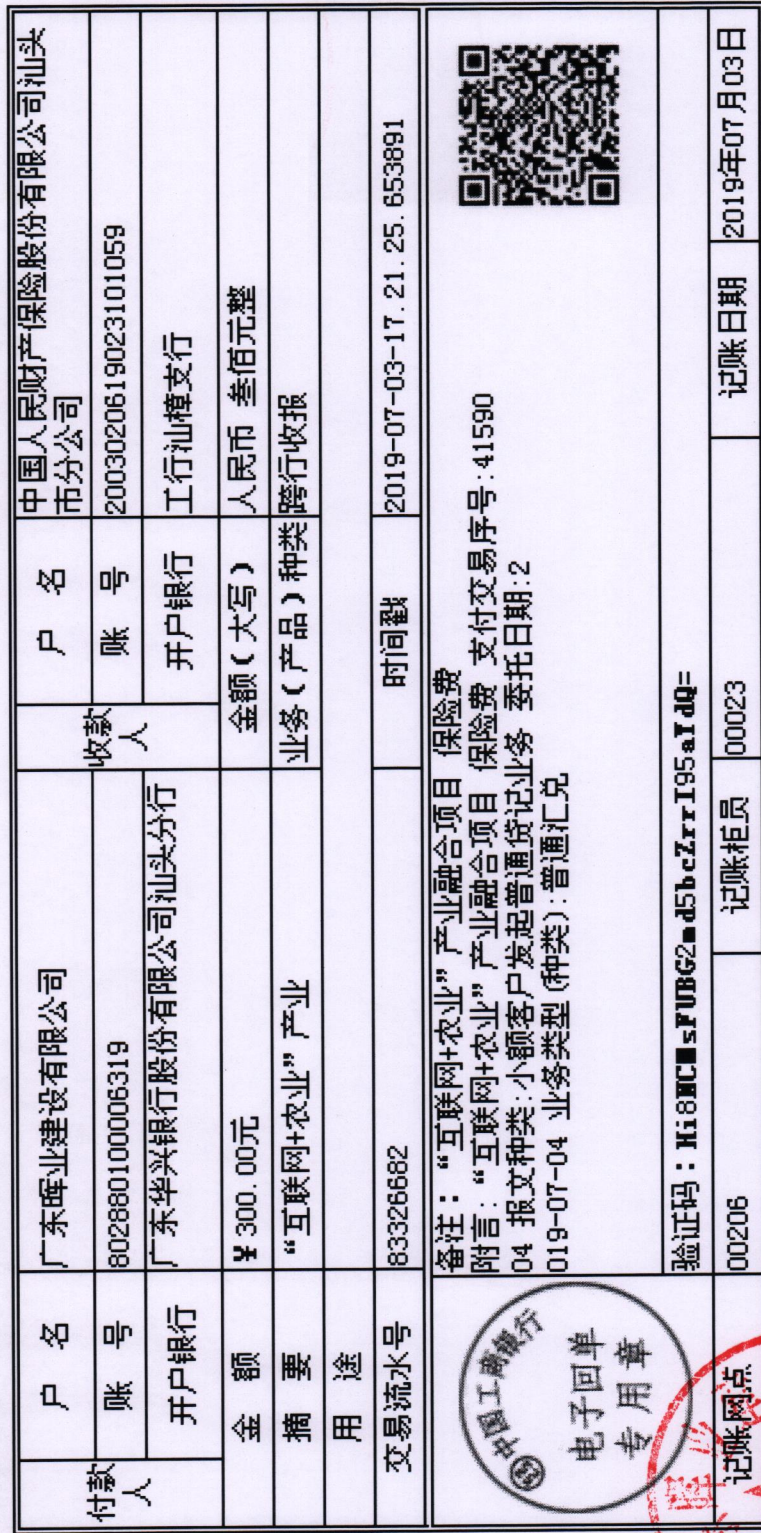 付款人 户 名 广东晖业建设有限公司 收款人 户 名 中国人民财产保险股份有限公司汕头市分公司
账 号 802880100006319 账 号 2003020619023101059
开户银行 广东华兴银行股份有限公司汕头分行 开户银行 工行汕樟支行
金 额 ¥300.00元 金额(大写) 人民币 叁佰元整
摘 要 “互联网+农业”产业 业务(产品)种类 跨行收报
用 途
交易流水号 83326682 时间戳 2019-07-03-17.21.25.653891
中国工商银行
电子回单
专用章
备注:“互联网+农业”产业融合项目 保险费
附言:“互联网+农业”产业融合项目 保险费 支付交易序号:41590
04 报文种类:小额客户发起普通贷记业务 委托日期:2
019-07-04 业务类型(种类):普通汇兑
验证码:
记账网点 00206 记账柜员 00023 记账日期 2019年07月03日